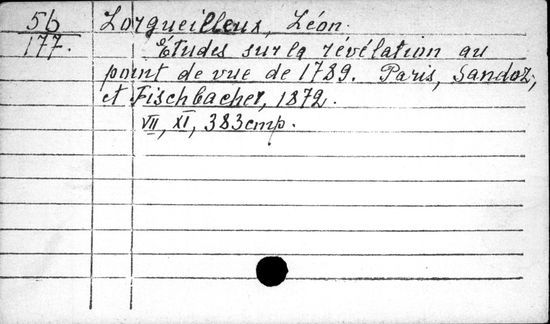 56 Lorgueilleux, Léon.
177. Études sur la révélation au
point de vue de 1789. Paris, Sandoz,
et Fischbacher, 1872.
VII, XI, 383 стр.